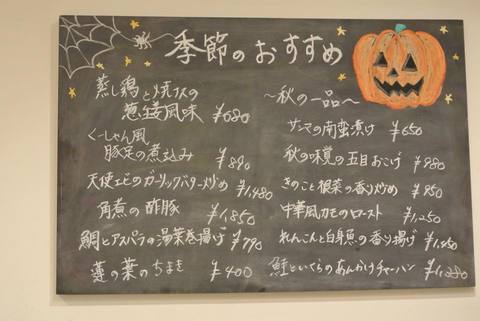 季節のおすすめ
蒸し鶏と焼ナスの
葱生姜風味 ¥680
くーしゃん風
豚足の煮込み ¥890
天使エビのガーリックバター炒め ¥1,480
角煮の酢豚 ¥1,850
鯛とアスパラの湯葉巻揚げ ¥790
蓮の葉のちまき ¥400
〜秋の一品〜
サンマの南蛮漬け ¥650
秋の味覚の五目おこげ ¥980
きのこと根菜の香り炒め ¥950
中華風カモのロースト ¥1,250
れんこんと白身魚の香り揚げ
鮭といくらのあんかけチャーハン ¥1,280